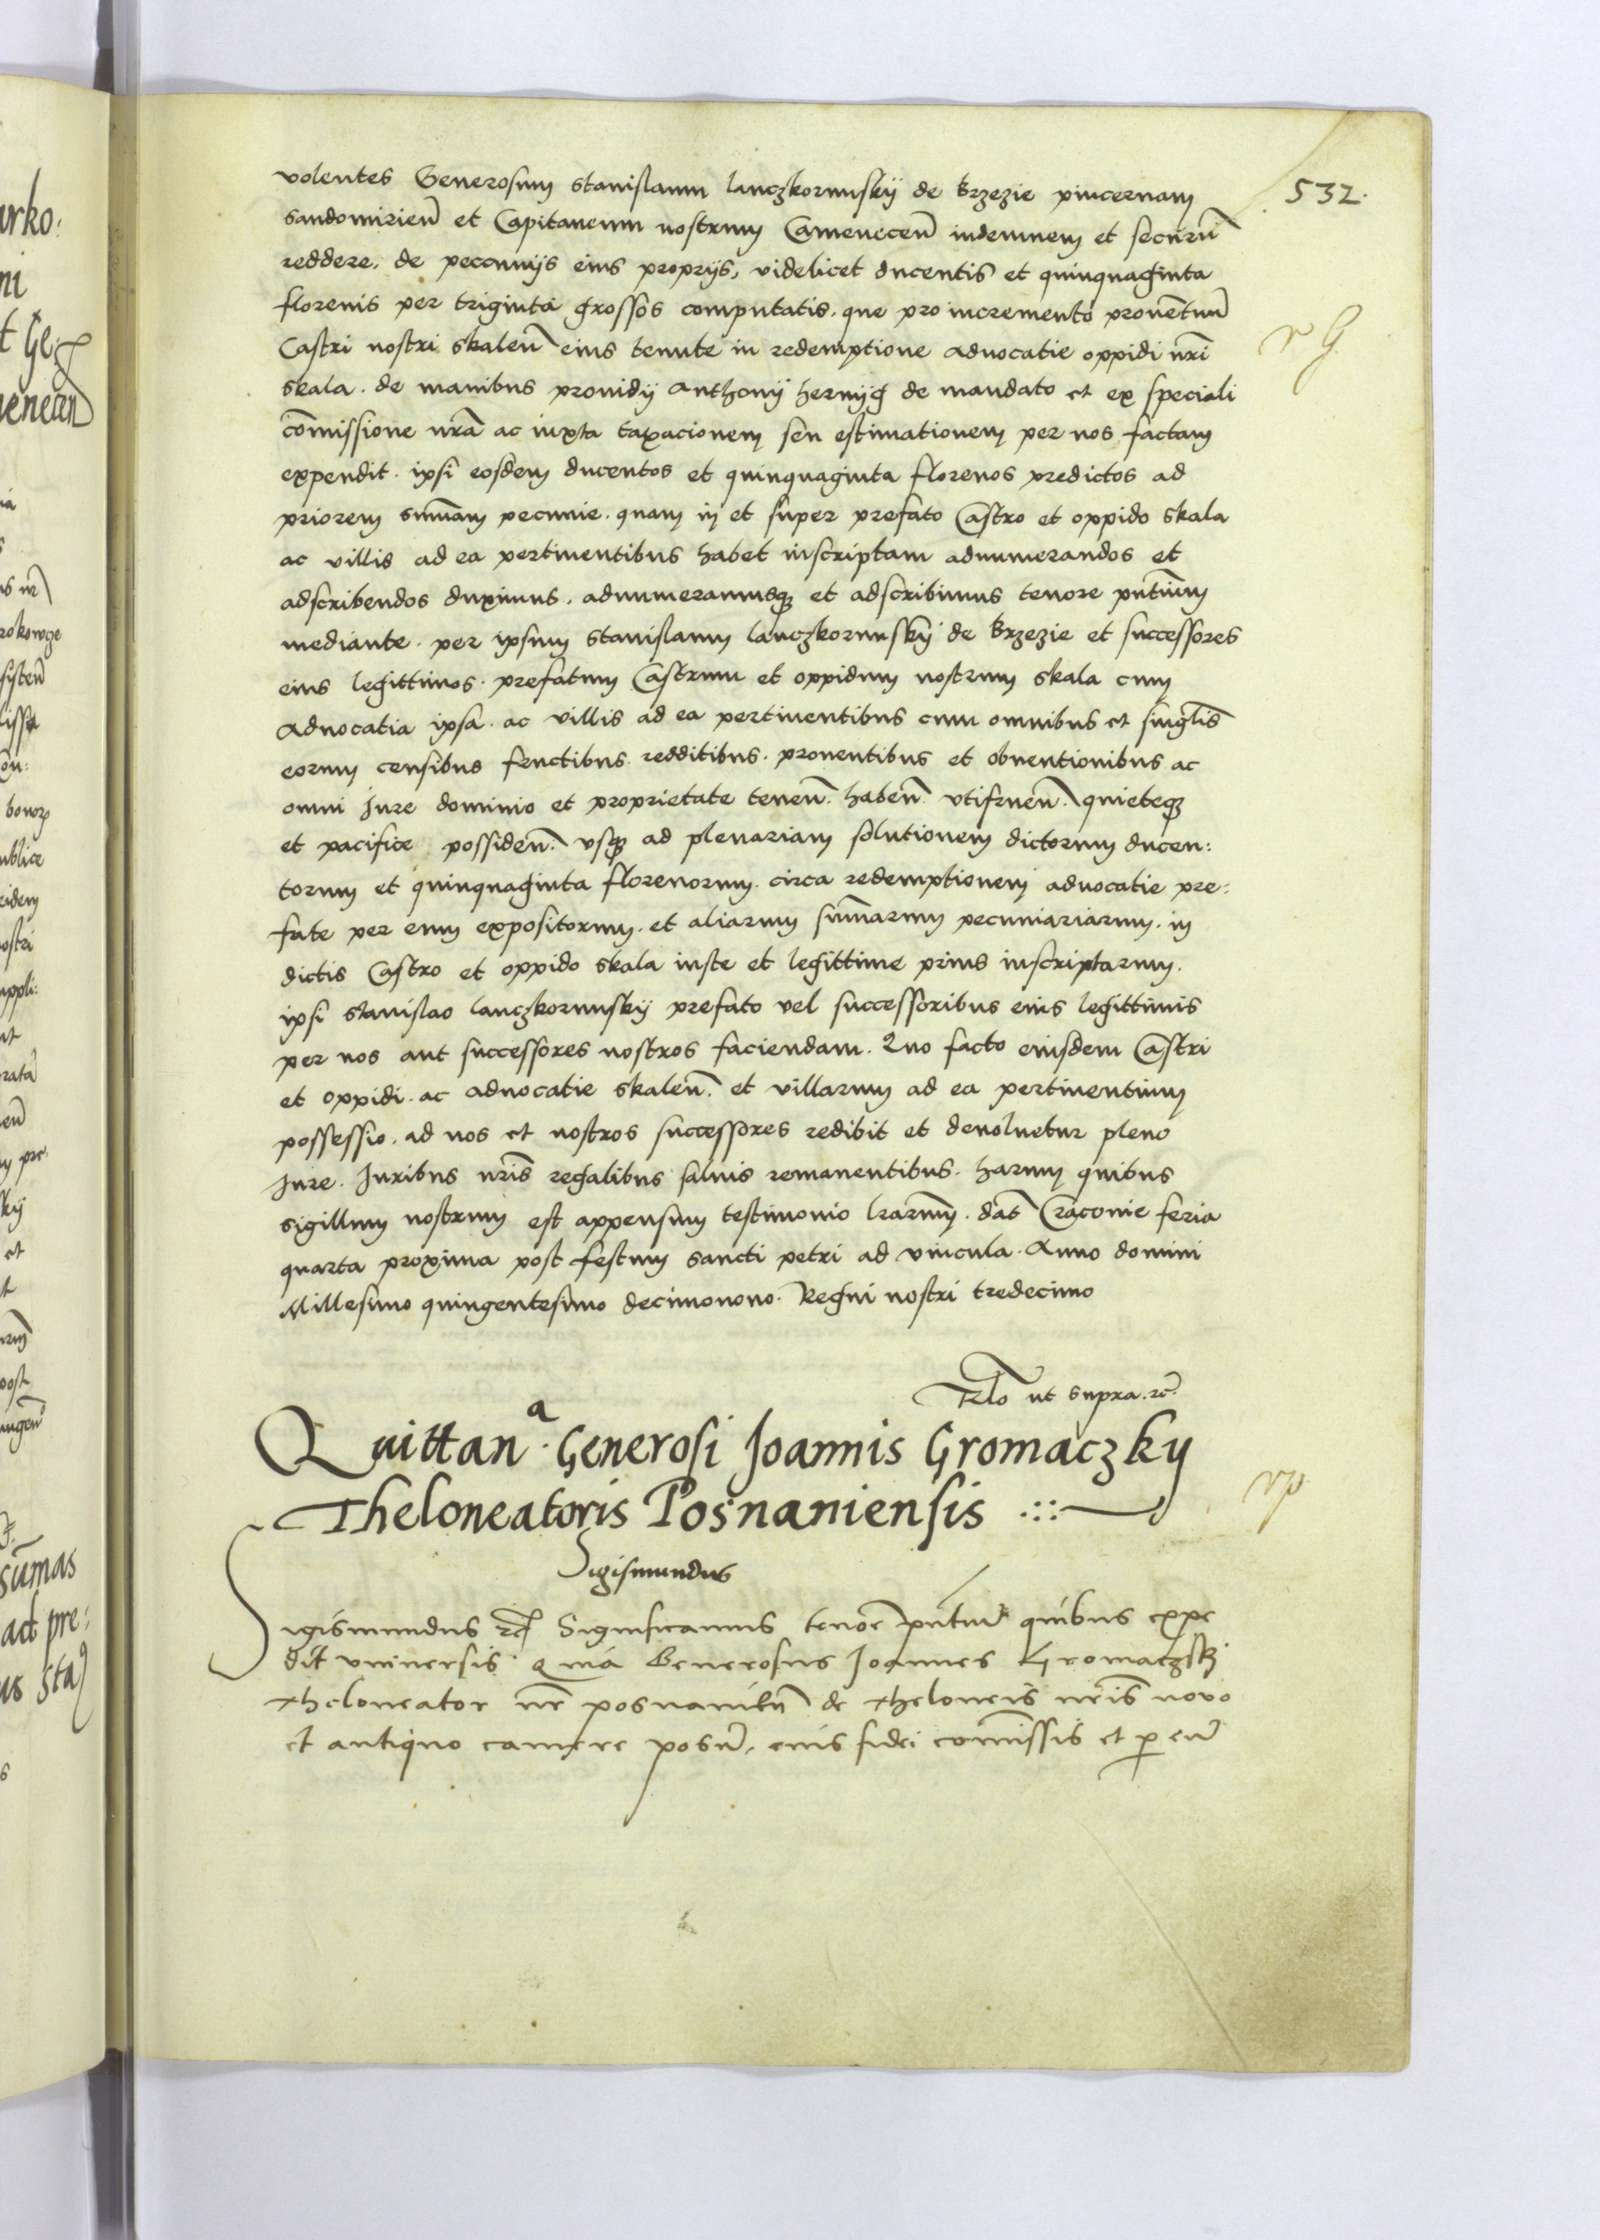 532.
volentes Generosum Stanislaum lanczkorunskij de Brzezie pincernam
Sandomirien et Capitaneum nostrum Camenecen indemnem et securu
reddere, de peccunijs eius proprijs, videlicet ducentis et quinquaginta
florenis per triginta grossos computatis, que pro incremento prouetuu
Castri nostri Skalen eius tenute in redemptione aduocatie oppidi nri
Skala. de manibus prouidij Anthonij hernijg de mandato et ex speciali
comissione nra ac iuxta taxacionem seu estimationem per nos factam
expendit. ipsi eosdem ducentos et quinquaginta florenos predictos ad
priorem sumam pecunie. quam in et super prefato Castro et oppido Skala
ac villis ad ea pertinentibus habet inscriptam adnumerandos et
adscribendos duximus. adnumeramusq et adscribimus tenore pntium
mediante. per ipsum Stanislaum lanczkorunskij de Brzezie et successores
eius legittimos. prefatum Castrum et oppidum nostrum Skala cum
Aduocatia ipsa. ac villis ad ea pertinentibus cum omnibus et singlis
eorum censibus fructibus redditibus. prouentibus et obuentionibus ac
omni Jure dominio et proprietate tenen. haben. vtifruen. quieteq
et pacifice possiden. vsq ad plenariam solutionem dictorum ducen:
torum et quinquaginta florenorum. circa redemptionem aduocatie pre:
fate per eum expositorum. et aliarum sumarum pecuniariarum. in
dictis Castro et oppido Skala iuste et legittime prius inscriptarum.
ipsi Stanislao lanczkorunskij prefato vel successoribus eius legittimis
per nos aut successores nostros faciendam. Quo facto eiusdem Castri
et oppidi. ac aduocatie Skalen. et villarum ad ea pertinentium
possessio. ad nos et nostros successores redibit et deuoluetur pleno
Jure. Juribus nris regalibus saluis remanentibus. harum quibus
sigillum nostrum est appensum testimonio lrarum. dat Cracouie feria
quarta proxima post festum Sancti petri ad vincula. Anno domini
Millesimo quingentesimo decimonono. Regni nostri tredecimo
Rlo ut supra. rc.
Quittan a. Generosi Joannis Gromaczky
Theloneatoris Posnaniensis
Sigismundus
Sigismundus rc Significamus tenore pntium quibus expe
dit vniuersis quia Generosus Joannes Gromaczski
theloneator nr posnanien de theloneis nris nouo
et antiquo camere posn. eius fidei comissis et p eu